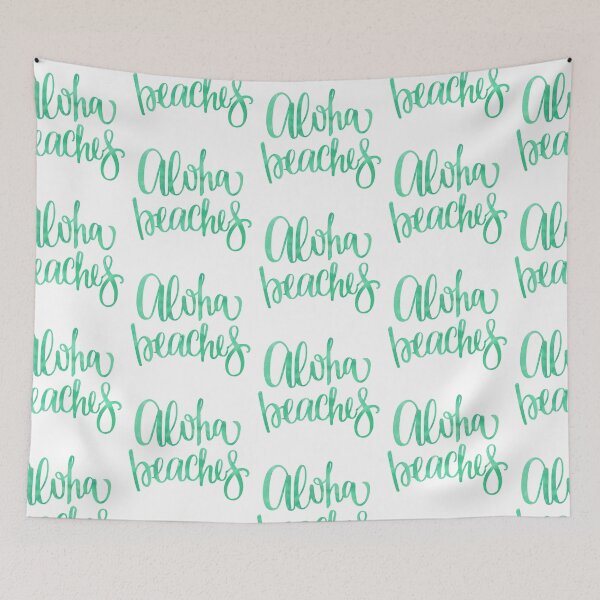 Aloha
beaches
Aloha
beaches
Aloha
beaches
Aloha
beaches
Aloha
beaches
Aloha
beaches
Aloha
beaches
Aloha
beaches
Aloha
beaches
Aloha
beaches
Aloha
beaches
Aloha
beaches
Aloha
beaches
Aloha